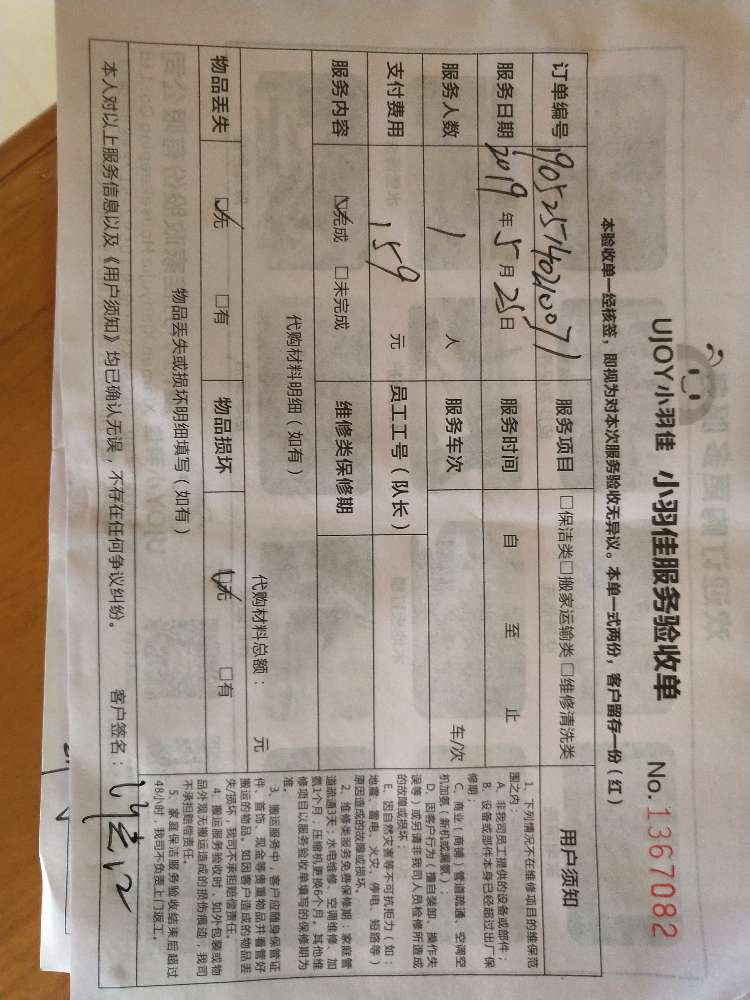 UJOY小羽佳 小羽佳服务验收单 No.1367082
本验收单一经核签，即视为对本次服务验收无异议。本单一式两份，客户留存一份（红）
订单编号 190525140210071 服务项目 □保洁类□搬家运输类□维修清洗类
服务日期 2019年5月25日 服务时间 自 至 止
服务人数 1 人 服务车次 车/次
支付费用 159 元 员工工号（队长）
服务内容 ☑完成 □未完成 维修类保修期
代购材料明细（如有） 代购材料总额： 元
物品丢失 ☑无 □有 物品损坏 ☑无 □有
物品丢失或损坏明细填写（如有）
用户须知
1、下列情况不在维修项目的维保范
围之内：
A、非我司员工提供的设备或部件；
B、设备或部件本身已经超过出厂保
修期；
C、商业（商铺）管道疏通、空调空
机加氨、新机或漏氨）；
D、因客户行为（擅自装卸、操作失
误等）或另请非我司人员检修所造成
的故障或损坏；
E、因自然灾害等不可抗拒力（如：
地震、雷电、火灾、停电、短路等）
原因造成的故障或损坏。
2、维修类服务免费保修期：家庭管
道疏通3天；水电维修、空调维修、加
氨1个月，压缩机更换6个月。其他维
修项目以服务验收单填写的保修期为
准。
3、搬运服务中，客户应随身保管证
件、首饰、现金等贵重物品并看管好
搬运的物品。如因客户造成的物品丢
失/损坏，我司不承担赔偿责任。
4、搬运服务验收时，如外包装或物
品外观无搬运造成的损伤痕迹，我司
不承担赔偿责任。
5、家庭保洁服务验收结束后超过
48小时，我司不负责上门返工。
本人对以上服务信息以及《用户须知》均已确认无误，不存在任何争议纠纷。 客户签名：